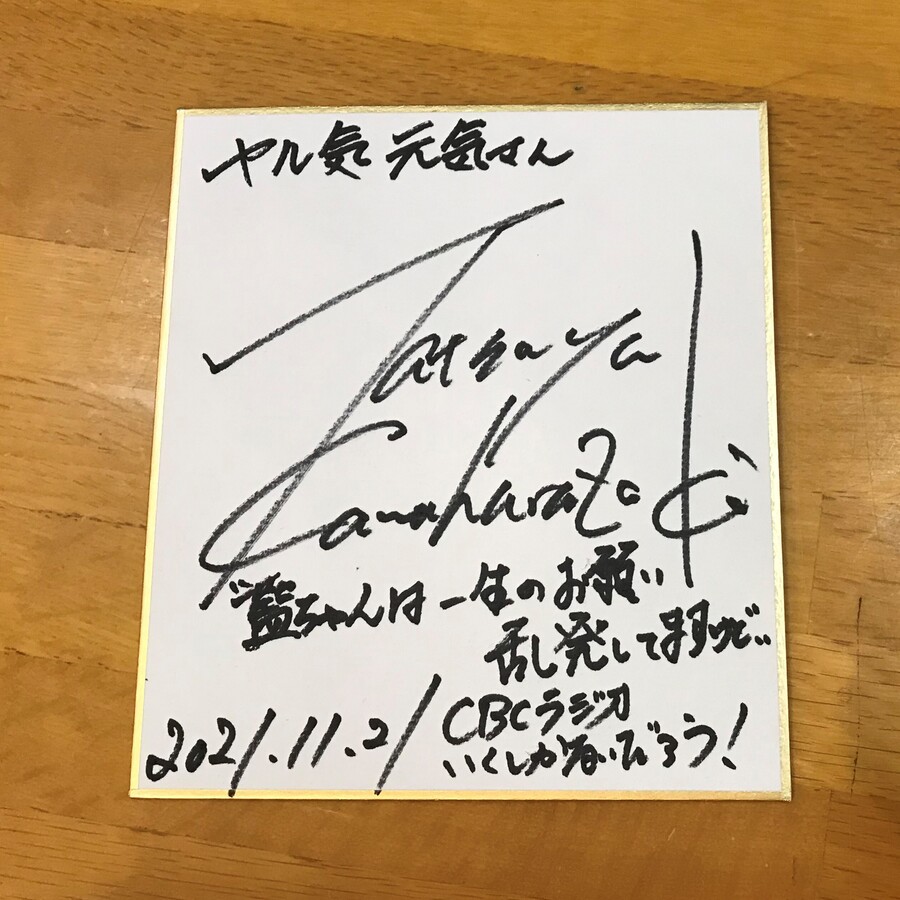 ヤル気 元気さん
Tatsuya
Kawaharazaki
"藍ちゃんは一生のお願い
乱発してますけど"
2021.11.21
CBCラジオ
いくしかないだろう!